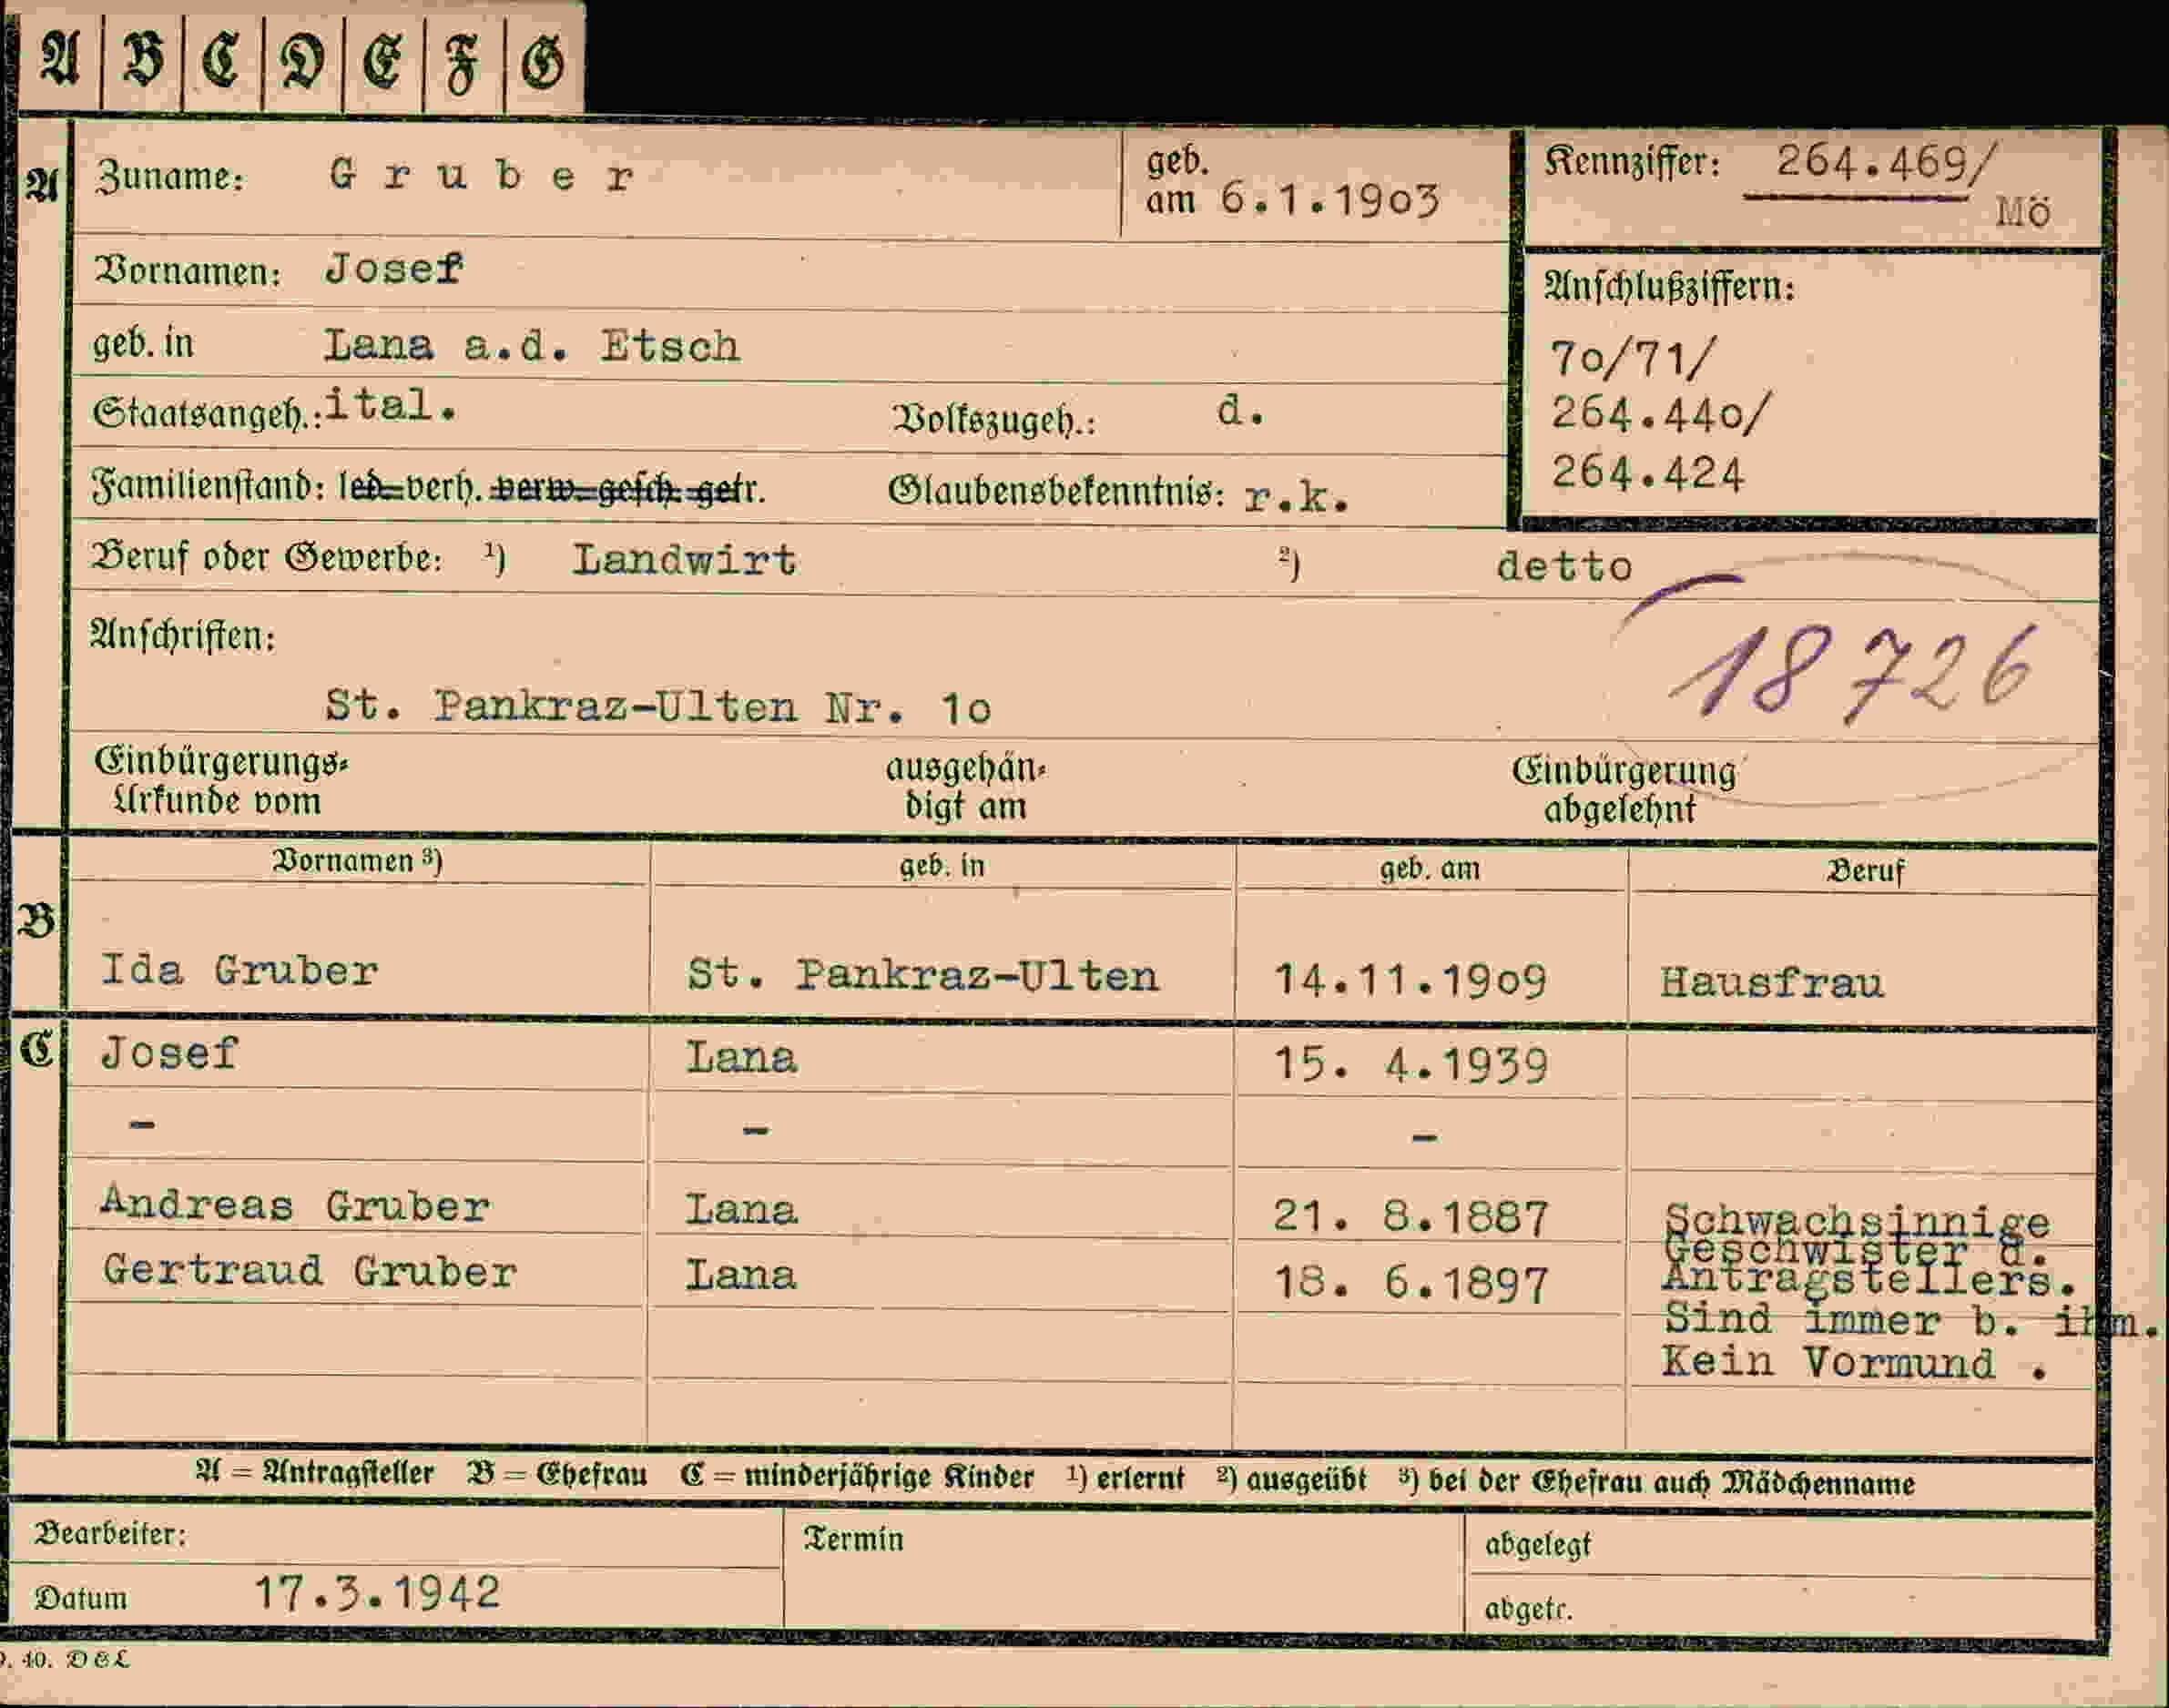 A B C D E F G
A Zuname: Gruber geb. am 6.1.1903 Kennziffer: 264.469/ Mö
Vornamen: Josef Anschlußziffern:
geb. in Lana a.d. Etsch 70/71/
Staatsangeh.: ital. Volkszugeh.: d. 264.440/
Familienstand: led. verh. verw. gesch. getr. Glaubensbekenntnis: r.k. 264.424
Beruf oder Gewerbe: ¹) Landwirt ²) detto
Anschriften: 18726
St. Pankraz-Ulten Nr. 10
Einbürgerungs- ausgehän- Einbürgerung
Urkunde vom digt am abgelehnt
Vornamen ³) geb. in geb. am Beruf
B
Ida Gruber St. Pankraz-Ulten 14.11.1909 Hausfrau
C Josef Lana 15. 4.1939
- - -
Andreas Gruber Lana 21. 8.1887 Schwachsinnige
Geschwister d.
Gertraud Gruber Lana 18. 6.1897 Antragstellers.
Sind immer b. ihm.
Kein Vormund .
A = Antragsteller B = Ehefrau C = minderjährige Kinder ¹) erlernt ²) ausgeübt ³) bei der Ehefrau auch Mädchenname
Bearbeiter: Termin abgelegt
Datum 17.3.1942 abgetr.
40. D&L